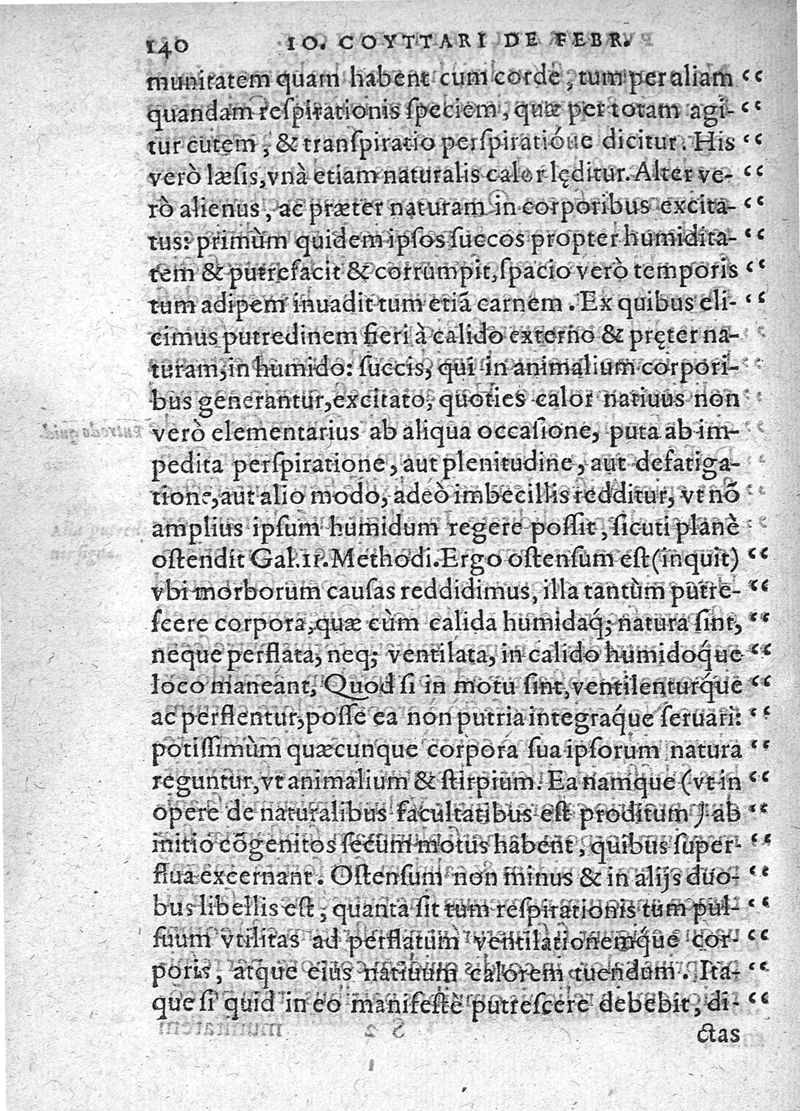 140 IO. COYTTARI DE FEBR.
munitatem quam habent cum corde, tum per aliam “
quandam reſpirationis ſpeciem, quæ per totam agi- “
tur cutem, & tranſpiratio perſpiratióue dicitur. His “
verò læsis, vnà etiam naturalis calor lęditur. Alter ve- “
rò alienus, ac præter naturam in corporibus excita- “
tus: primùm quidem ipſos ſuccos propter humidita- “
tem & putrefacit & corrumpit, ſpacio verò temporis “
tum adipem inuadit tum etiã carnem. Ex quibus eli- “
cimus putredinem fieri à calido externo & pręter na-
turam, in humido: ſuccis, qui in animalium corpori-
bus generantur, excitato, quoties calor natiuus non
verò elementarius ab aliqua occaſione, puta ab im-
pedita perſpiratione, aut plenitudine, aut defatiga-
tione, aut alio modo, adeò imbecillis redditur, vt nõ
amplius ipſum humidum regere poſſit, ſicuti planè
oſtendit Gal. 11. Methodi. Ergo oſtenſum eſt (inquit) “
vbi morborum cauſas reddidimus, illa tantùm putre- “
ſcere corpora, quæ cùm calida humidaq́; natura ſint, “
neque perflata, neq; ventilata, in calido humidoq́ue “
loco maneant, Quod ſi in motu ſint, ventilenturq́ue “
ac perflentur, poſſe ea non putria integraq́ue ſeruari: “
potiſſimùm quæcunque corpora ſua ipſorum natura “
reguntur, vt animalium & ſtirpium. Ea namque (vt in “
opere de naturalibus facultatibus eſt proditum) ab “
initio cõgenitos ſecum motus habent, quibus ſuper- “
flua excernant. Oſtenſum non minus & in alijs duo- “
bus libellis eſt, quanta ſit tum reſpirationis tum pul- “
ſuum vtilitas ad perflatum ventilationemq́ue cor- “
poris, atque eius natiuum calorem tuendum. Ita- “
que ſi quid in eo manifeſtè putreſcere debebit, di- “
ctas